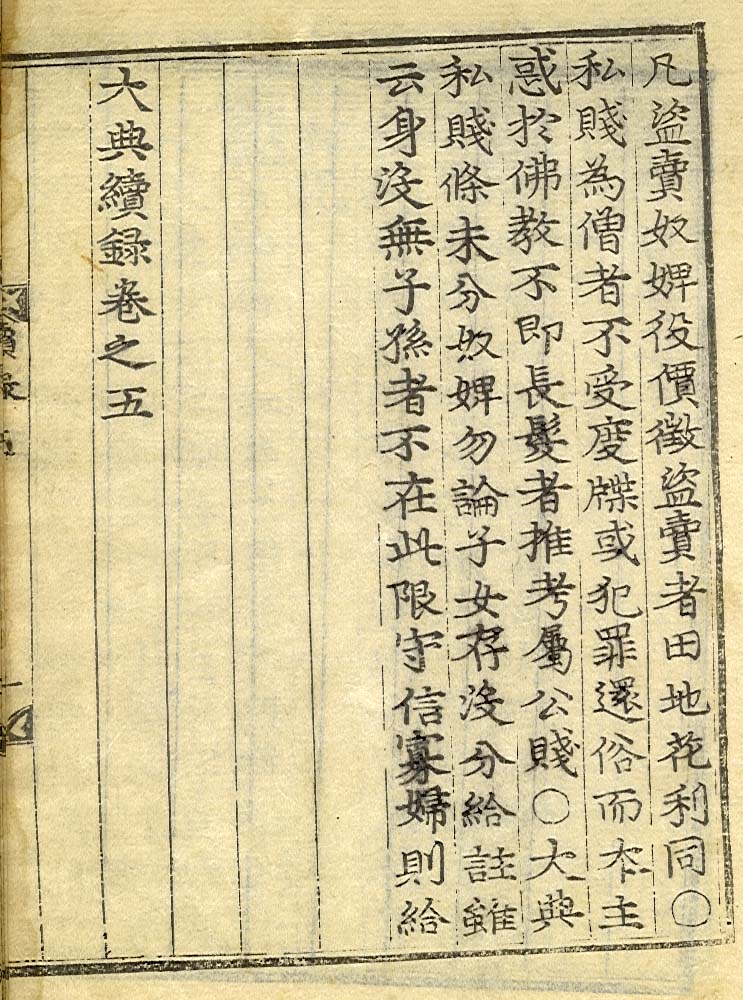 凡盜賣奴婢役價徵盜賣者田地花利同〇
私賤為僧者不受度牒或犯罪還俗而本主
惑扵佛教不即長髮者推考屬公賤〇大典
私賤條未分奴婢勿論子女存沒分給註雖
云身沒無子孫者不在此限守信寡婦則給
大典續錄卷之五